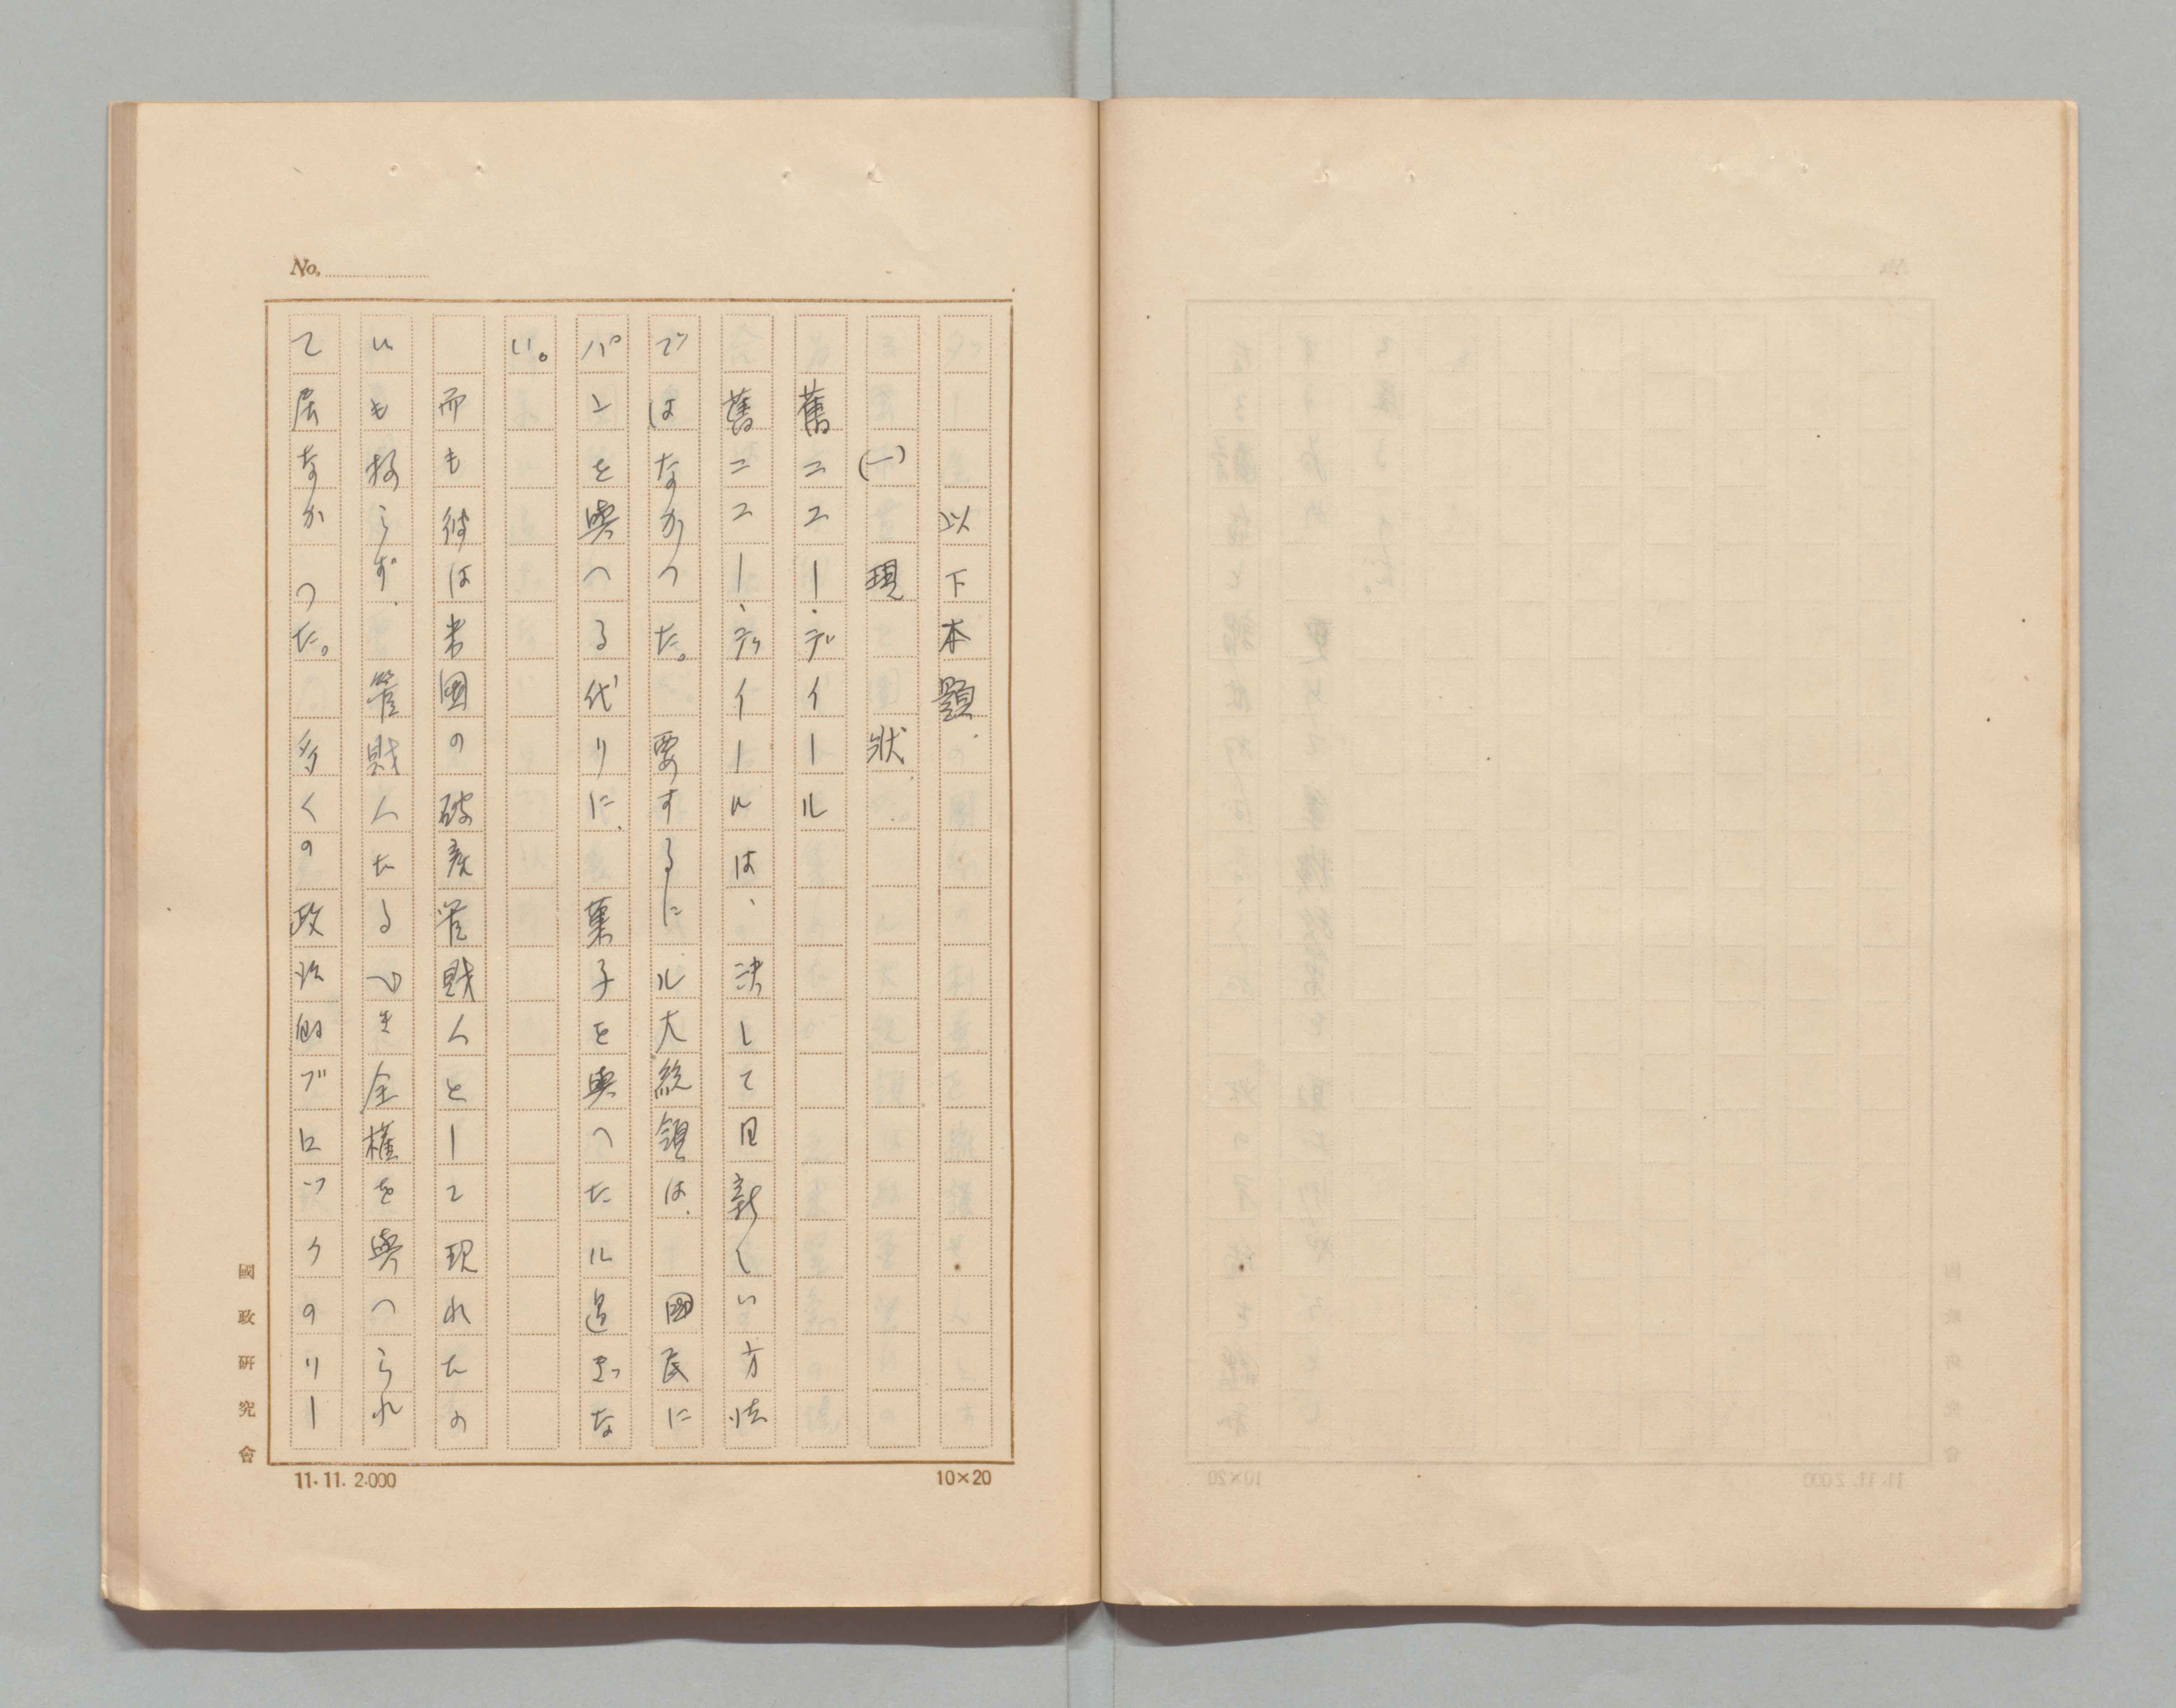 No.
以下本題.
(一) 現 狀.
舊ニユー・デイール
舊ニユー・デイールは、決して目新しい方法
ではなかつた。要するにル大統領は、國民に
パンを與へる代りに、菓子を與へたに過ぎな
い。
而も彼は米國の破産管財人として現れたの
にも拘らず、管財人たるべき全權を與へられ
て居なかつた。多くの政治的ブロックのリー
國政研究會
11.11.2.000
10×20